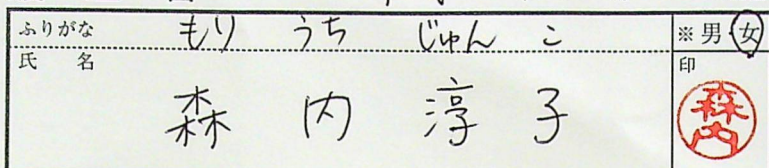 ふりがな もり うち じゅん こ ※男・女
氏 名 森 内 淳 子 印
森内